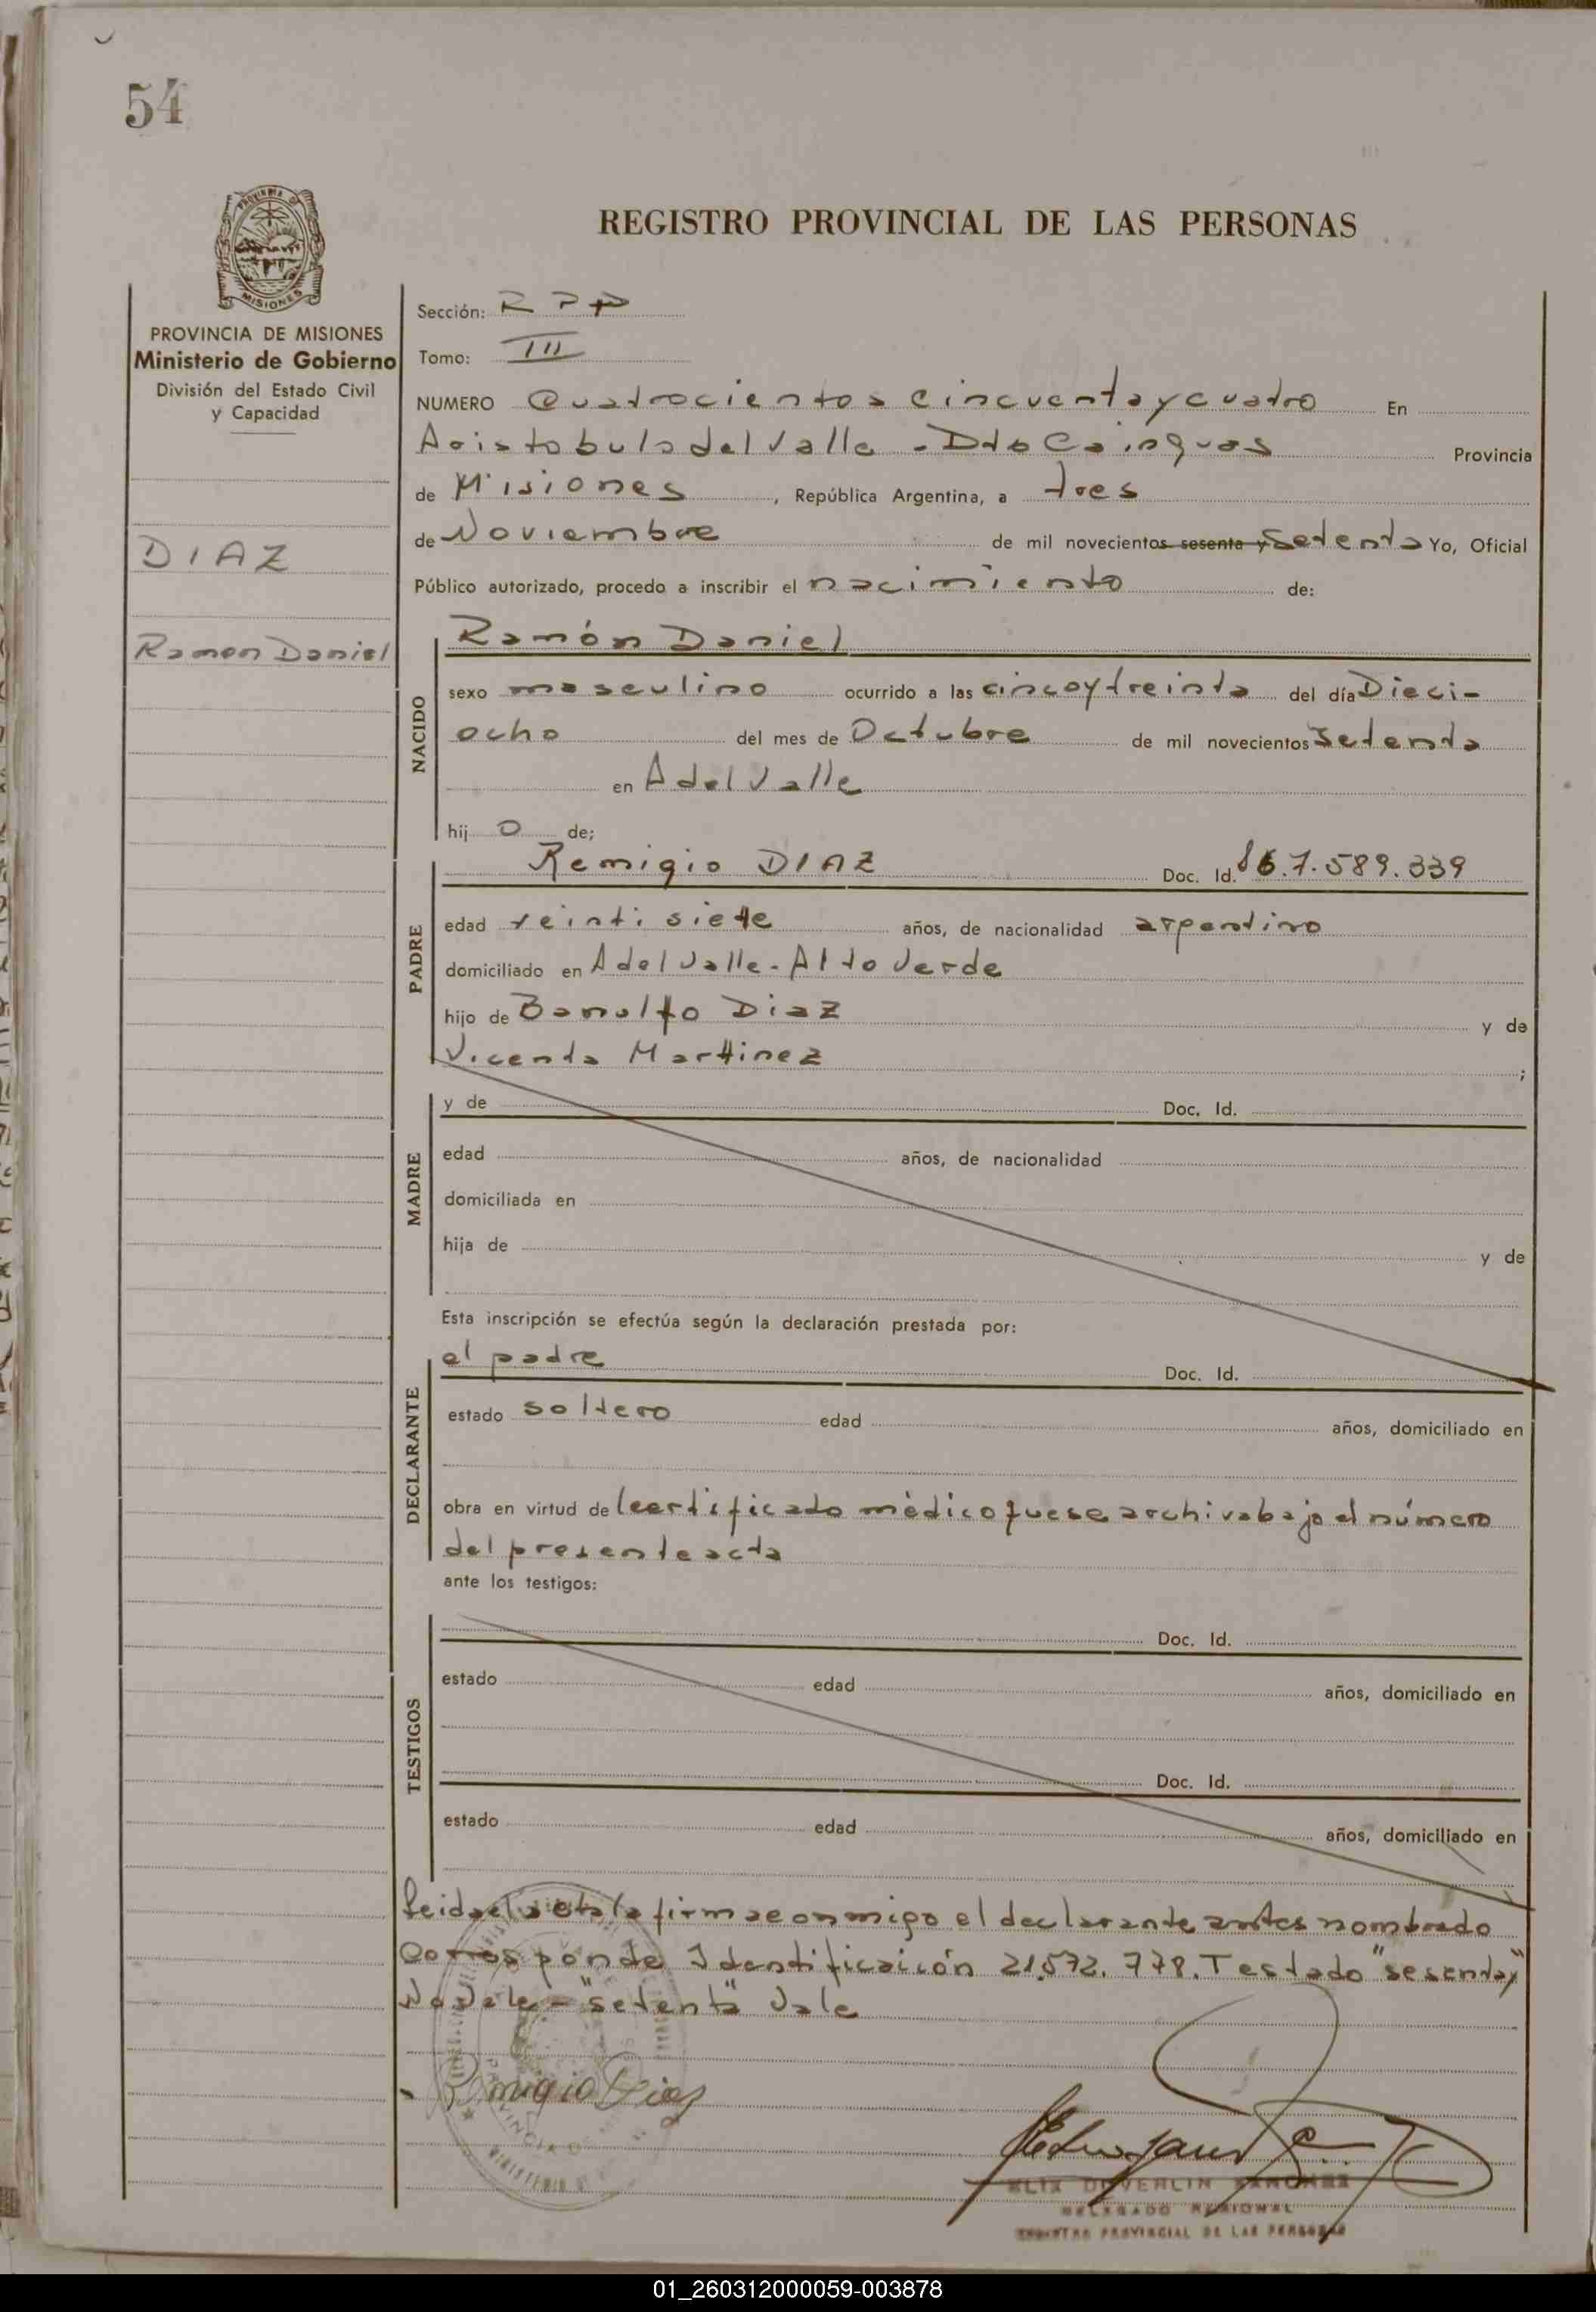 54
REGISTRO PROVINCIAL DE LAS PERSONAS
PROVINCIA DE MISIONES
Ministerio de Gobierno
División del Estado Civil
y Capacidad
DIAZ
Ramon Daniel
Sección: R P P
Tomo: III
NUMERO Cuatrocientos cincuenta y cuatro En
Aristobulo del Valle - Dto Cainguas Provincia
de Misiones, República Argentina, a tres
de Noviembre de mil novecientos sesenta y setenta Yo, Oficial
Público autorizado, procedo a inscribir el nacimiento de:
NACIDO
Ramón Daniel
sexo masculino ocurrido a las cinco y treinta del día Dieci-
ocho del mes de Octubre de mil novecientos setenta
en A del Valle
hij o de;
PADRE
Remigio DIAZ Doc. Id. 7.589.339
edad veinti siete años, de nacionalidad argentino
domiciliado en A del Valle - Alto Verde
hijo de Diaz y de
Vicenta Marttinez ;
MADRE
y de Doc. Id.
edad años, de nacionalidad
domiciliada en
hija de y de
Esta inscripción se efectúa según la declaración prestada por:
DECLARANTE
el padre Doc. Id.
estado soltero edad años, domiciliado en
obra en virtud de certificado médico que se archiva bajo el número
del presente acta
ante los testigos:
TESTIGOS
Doc. Id.
estado edad años, domiciliado en
Doc. Id.
estado edad años, domiciliado en
Leida el acta la firma conmigo el declarante antes nombrado
Corresponde Identificación 21.572.778. Testado "sesenta y"
No Vale - "setenta" Vale
Remigio Diaz
DELEGADO REGIONAL
REGISTRO PROVINCIAL DE LAS PERSONAS
01_260312000059-003878